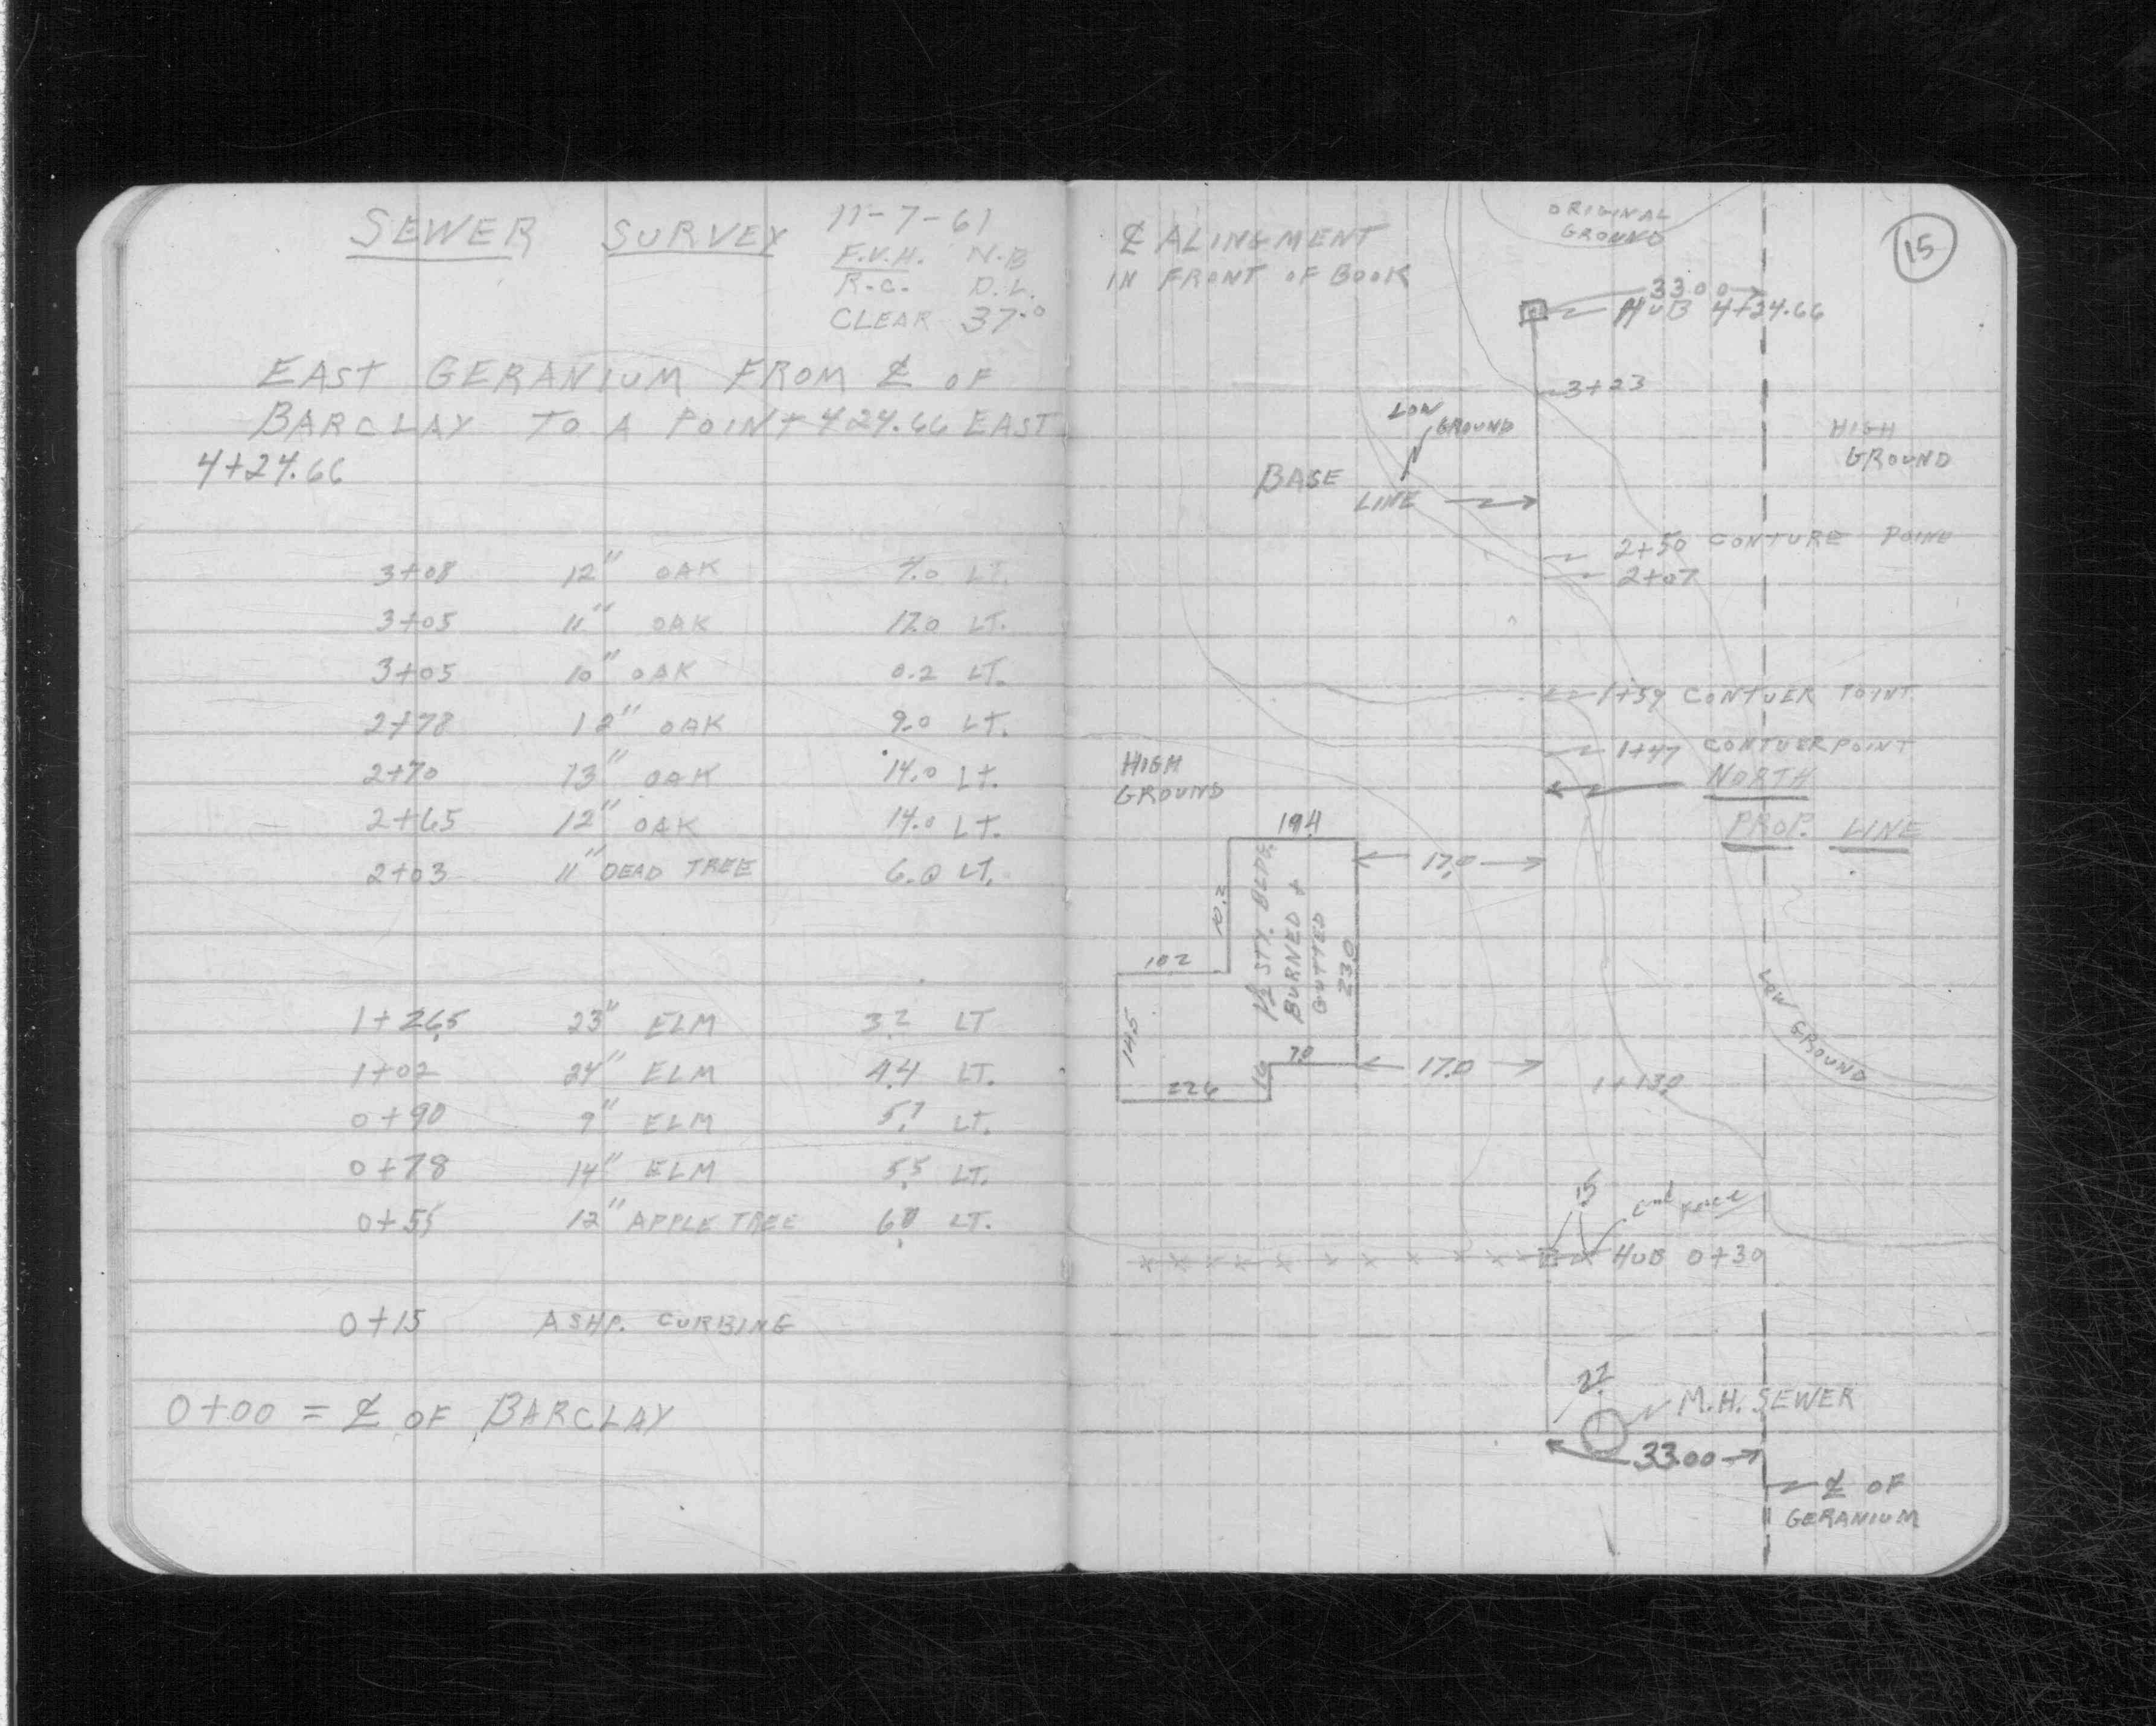 SEWER SURVEY
11-7-61
F.V.H. N.B
R.C. D.L.
CLEAR 37.°
EAST GERANIUM FROM ℄ OF
BARCLAY TO A POINT 424.66 EAST
4+24.66
3+08 12" OAK 7.0 LT.
3+05 11" OAK 17.0 LT.
3+05 10" OAK 0.2 LT.
2+78 12" OAK 9.0 LT.
2+70 13" OAK 14.0 LT.
2+65 12" OAK 14.0 LT.
2+03 11" DEAD TREE 6.0 LT.
1+26.5 23" ELM 3.2 LT
1+02 24" ELM 4.4 LT.
0+90 9" ELM 5.7 LT.
0+78 14" ELM 5.5 LT.
0+55 12" APPLE TREE 6.0 LT.
0+15 ASHP. CURBING
0+00 = ℄ OF BARCLAY
℄ ALINGMENT
IN FRONT OF BOOK
ORIGINAL
GROUND
15
33.00
HUB 4+24.66
3+23
LOW
GROUND
HIGH
GROUND
BASE
LINE
2+50 CONTURE POINT
2+07
1+59 CONTUER POINT
1+47 CONTUER POINT
NORTH
HIGH
GROUND
PROP. LINE
19.4
17.0
10.2
1½ STY. BLDG.
BURNED +
GUTTED
23.0
10.2
14.5
7.0
17.0
22.6
LOW GROUND
1+13.0
1.5
end fence
HUB 0+30
M.H. SEWER
33.00
℄ OF
GERANIUM